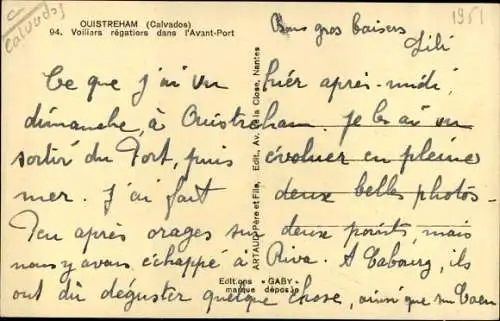 Calvados
OUISTREHAM (Calvados)
94. Voiliers régatiers dans l'Avant-Port
1951
Bons gros baisers
Lili
Ce que j'ai vu hier après-midi,
dimanche, à Ouistreham. Je les ai vu
sortir du Port, puis évoluer en pleine
mer. J'ai fait deux belles photos.
Peu après orages sur deux points, mais
nous y avons échappé à Riva. A Cabourg, ils
ont dû déguster quelque chose, ainsi que sur Caen
ARTAUD Père et Fils, Edit., Av. de la Close, Nantes
Editions "GABY"
marque déposée